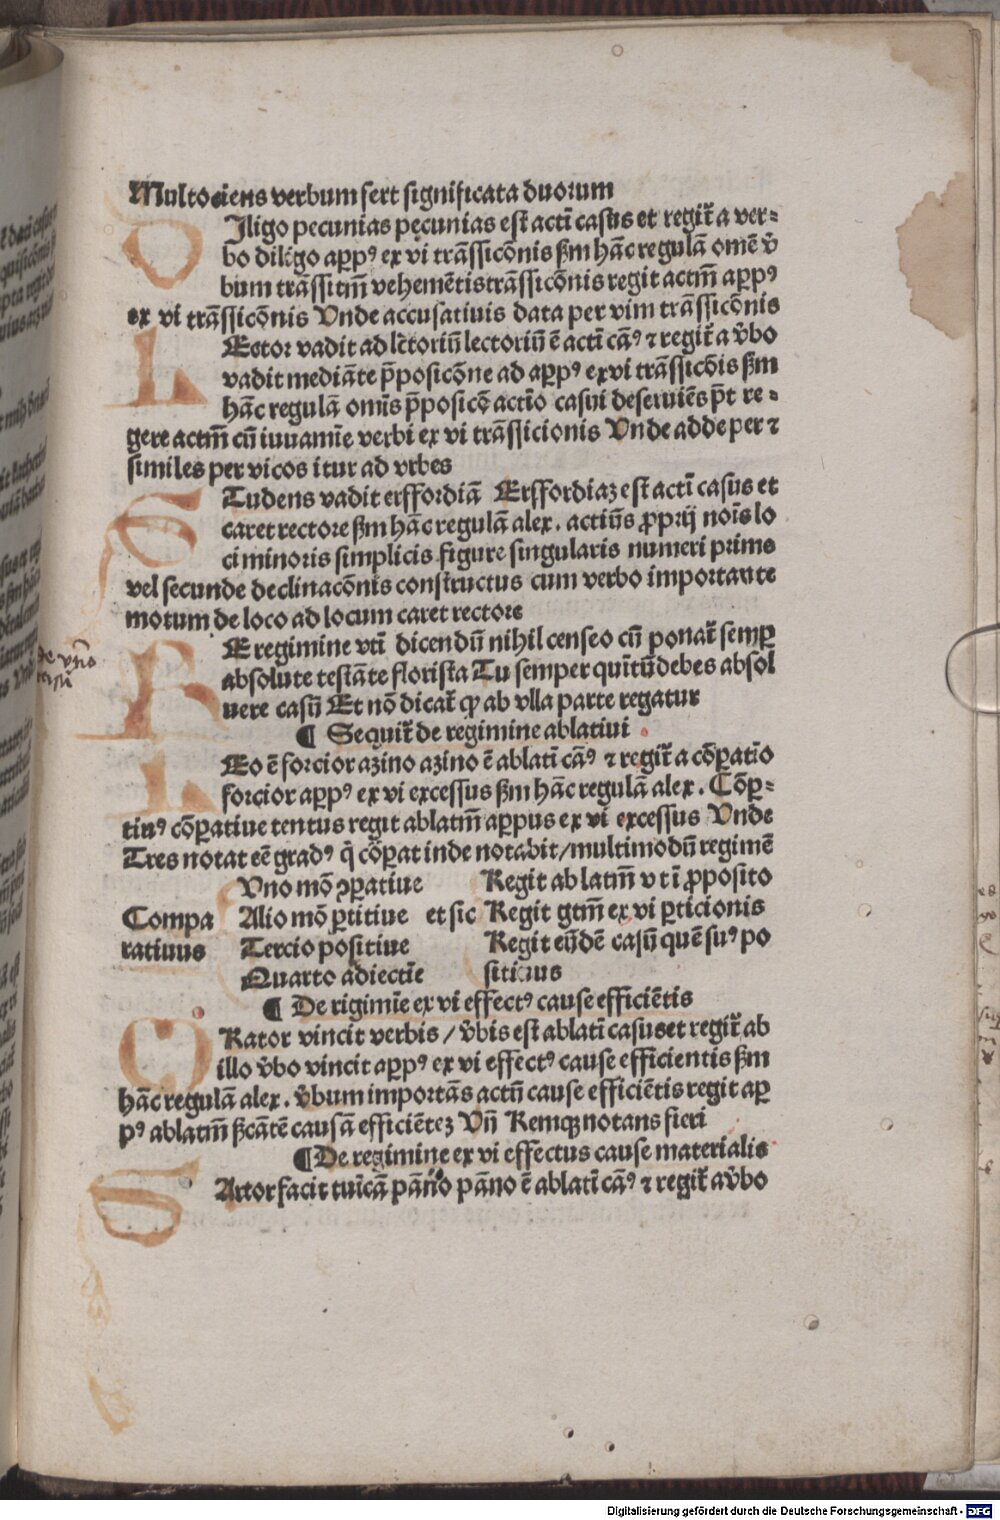 Multociens verbum fert significata duorum
DIligo pecunias pecunias est acti casus et regit̃ a ver⸗
bo diligo aꝑpꝰ ex vi trãssicõnis ẞm hãc regulã omẽ ṽ
bum trãssitm̃ vehemẽtis trãssicõnis regit actm̃ aꝑpꝰ
ex vi trãssicõnis Vnde accusatiuis data per vim trãssicõnis
LEctor vadit ad lc̃toriũ lectoriũ ẽ acti cãꝰ ⁊ regit̃ a ṽbo
vadit mediãte p̃posicõne ad aꝑpꝰ ex vi trãssicõis ẞm
hãc regulã omĩs p̃posicõ actĩo casui deseruiẽs p̃t re⸗
gere actm̃ cũ iuuamĩe verbi ex vi trãssicionis Vnde adde per ⁊
similes per vicos itur ad vrbes
STudens vadit erffordiã Erffordiaꝫ est acti casus et
caret rectore ẞm hãc regulã alex. actiũs ꝓprij noĩs lo
ci minoris simplicis figure singularis numeri prime
vel secunde declinacõnis constructus cum verbo importante
motum de loco ad locum caret rectore
RE regimine vti dicendũ nihil censeo cũ ponat̃ semꝑ
absolute testãte florista Tu semper quĩtũ debes absol
uere casũ Et nõ dicat̃ ꝙ ab vlla parte regatur
¶ Sequit̃ de regimine ablatiui
LEo ẽ forcior azino azino ẽ ablati cãꝰ ⁊ regit̃ a cõꝑatĩo
forcior aꝑpꝰ ex vi excessus ẞm hãc regulã alex. Cõꝑ⸗
tiuꝰ cõꝑatiue tentus regit ablatm̃ aꝑpus ex vi excessus Vnde
Tres notat eẽ gradꝰ q̃ cõꝑat inde notabit/multimodũ regimẽ
Vno mõ ꝯꝑatiue Regit ablatm̃ vti ꝓposito
Compa Alio mõ ꝑtitiue et sic Regit gtm̃ ex vi ꝑticionis
ratiuus Tercio positiue Regit eũdẽ casũ quẽ suꝰ po
Quarto adiectĩe sitiuus
¶ De rigimĩe ex vi effectꝰ cause efficiẽtis
ORator vincit verbis / ṽbis est ablati casus et regit̃ ab
illo ṽbo vincit aꝑpꝰ ex vi effectꝰ cause efficientis ẞm
hãc regulã alex. ṽbum importãs actũ cause efficiẽtis regit aꝑ
pꝰ ablatm̃ ẞcãtẽ causã efficiẽteꝫ Vñ Remqꝫ notans fieri
¶ De regimine ex vi effectus cause materialis
SArtor facit tuĩcã pãno pãno ẽ ablati cãꝰ ⁊ regit̃ a ṽbo
Digitalisierung gefördert durch die Deutsche Forschungsgemeinschaft - DFG